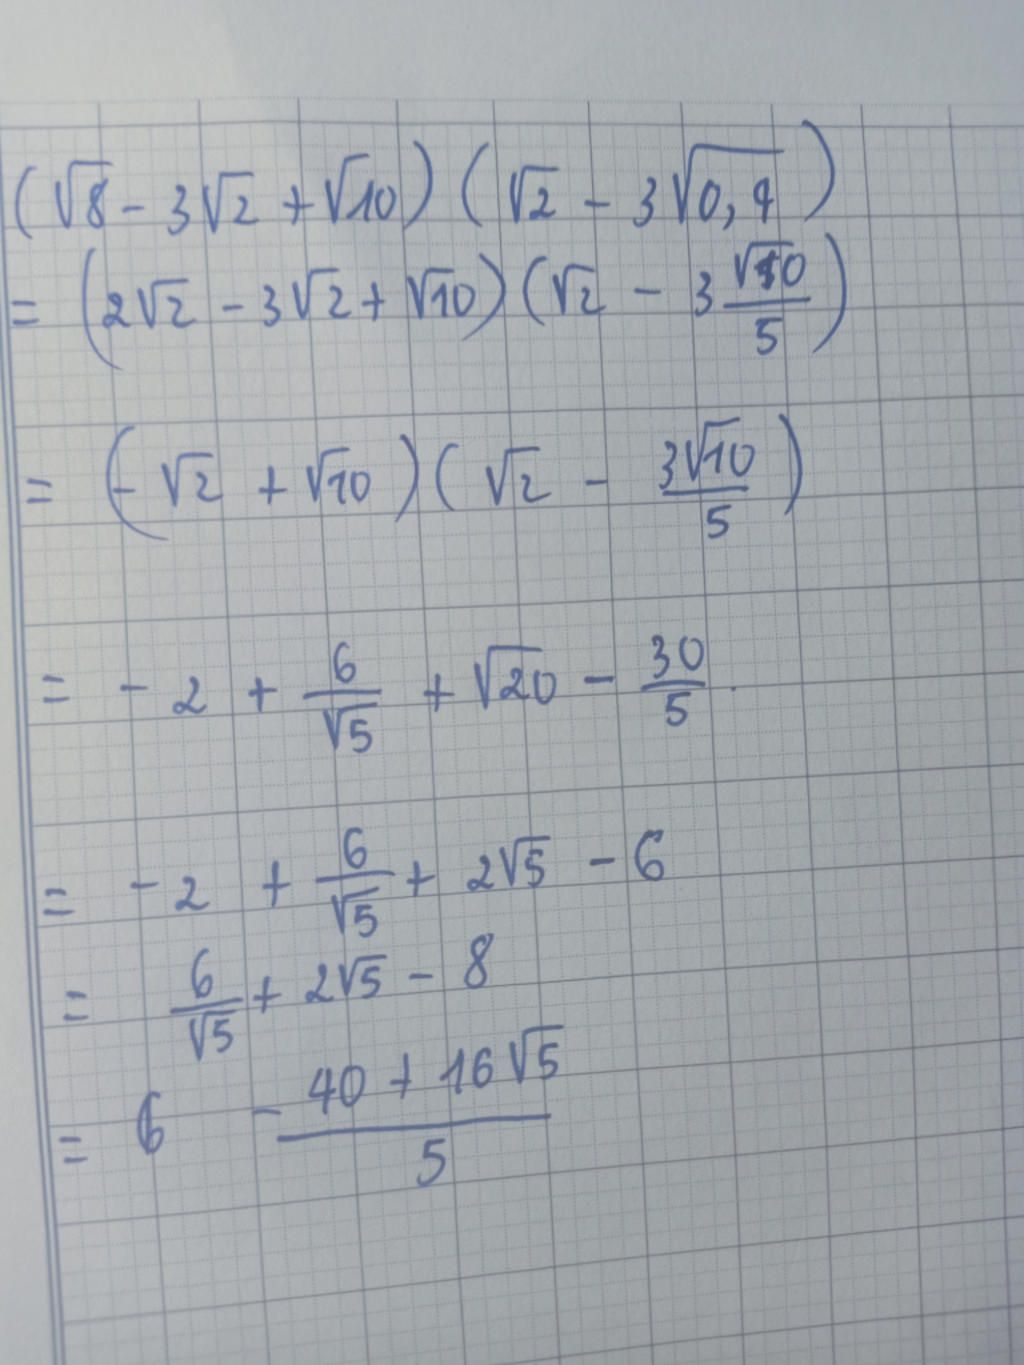 (√8 - 3√2 + √10) (√2 - 3√0,4)
= (2√2 - 3√2 + √10) (√2 - 3 √10/5)
= (- √2 + √10) (√2 - 3√10/5)
= - 2 + 6/√5 + √20 - 30/5.
= - 2 + 6/√5 + 2√5 - 6
= 6/√5 + 2√5 - 8
= 6 (- 40 + 16√5)/5